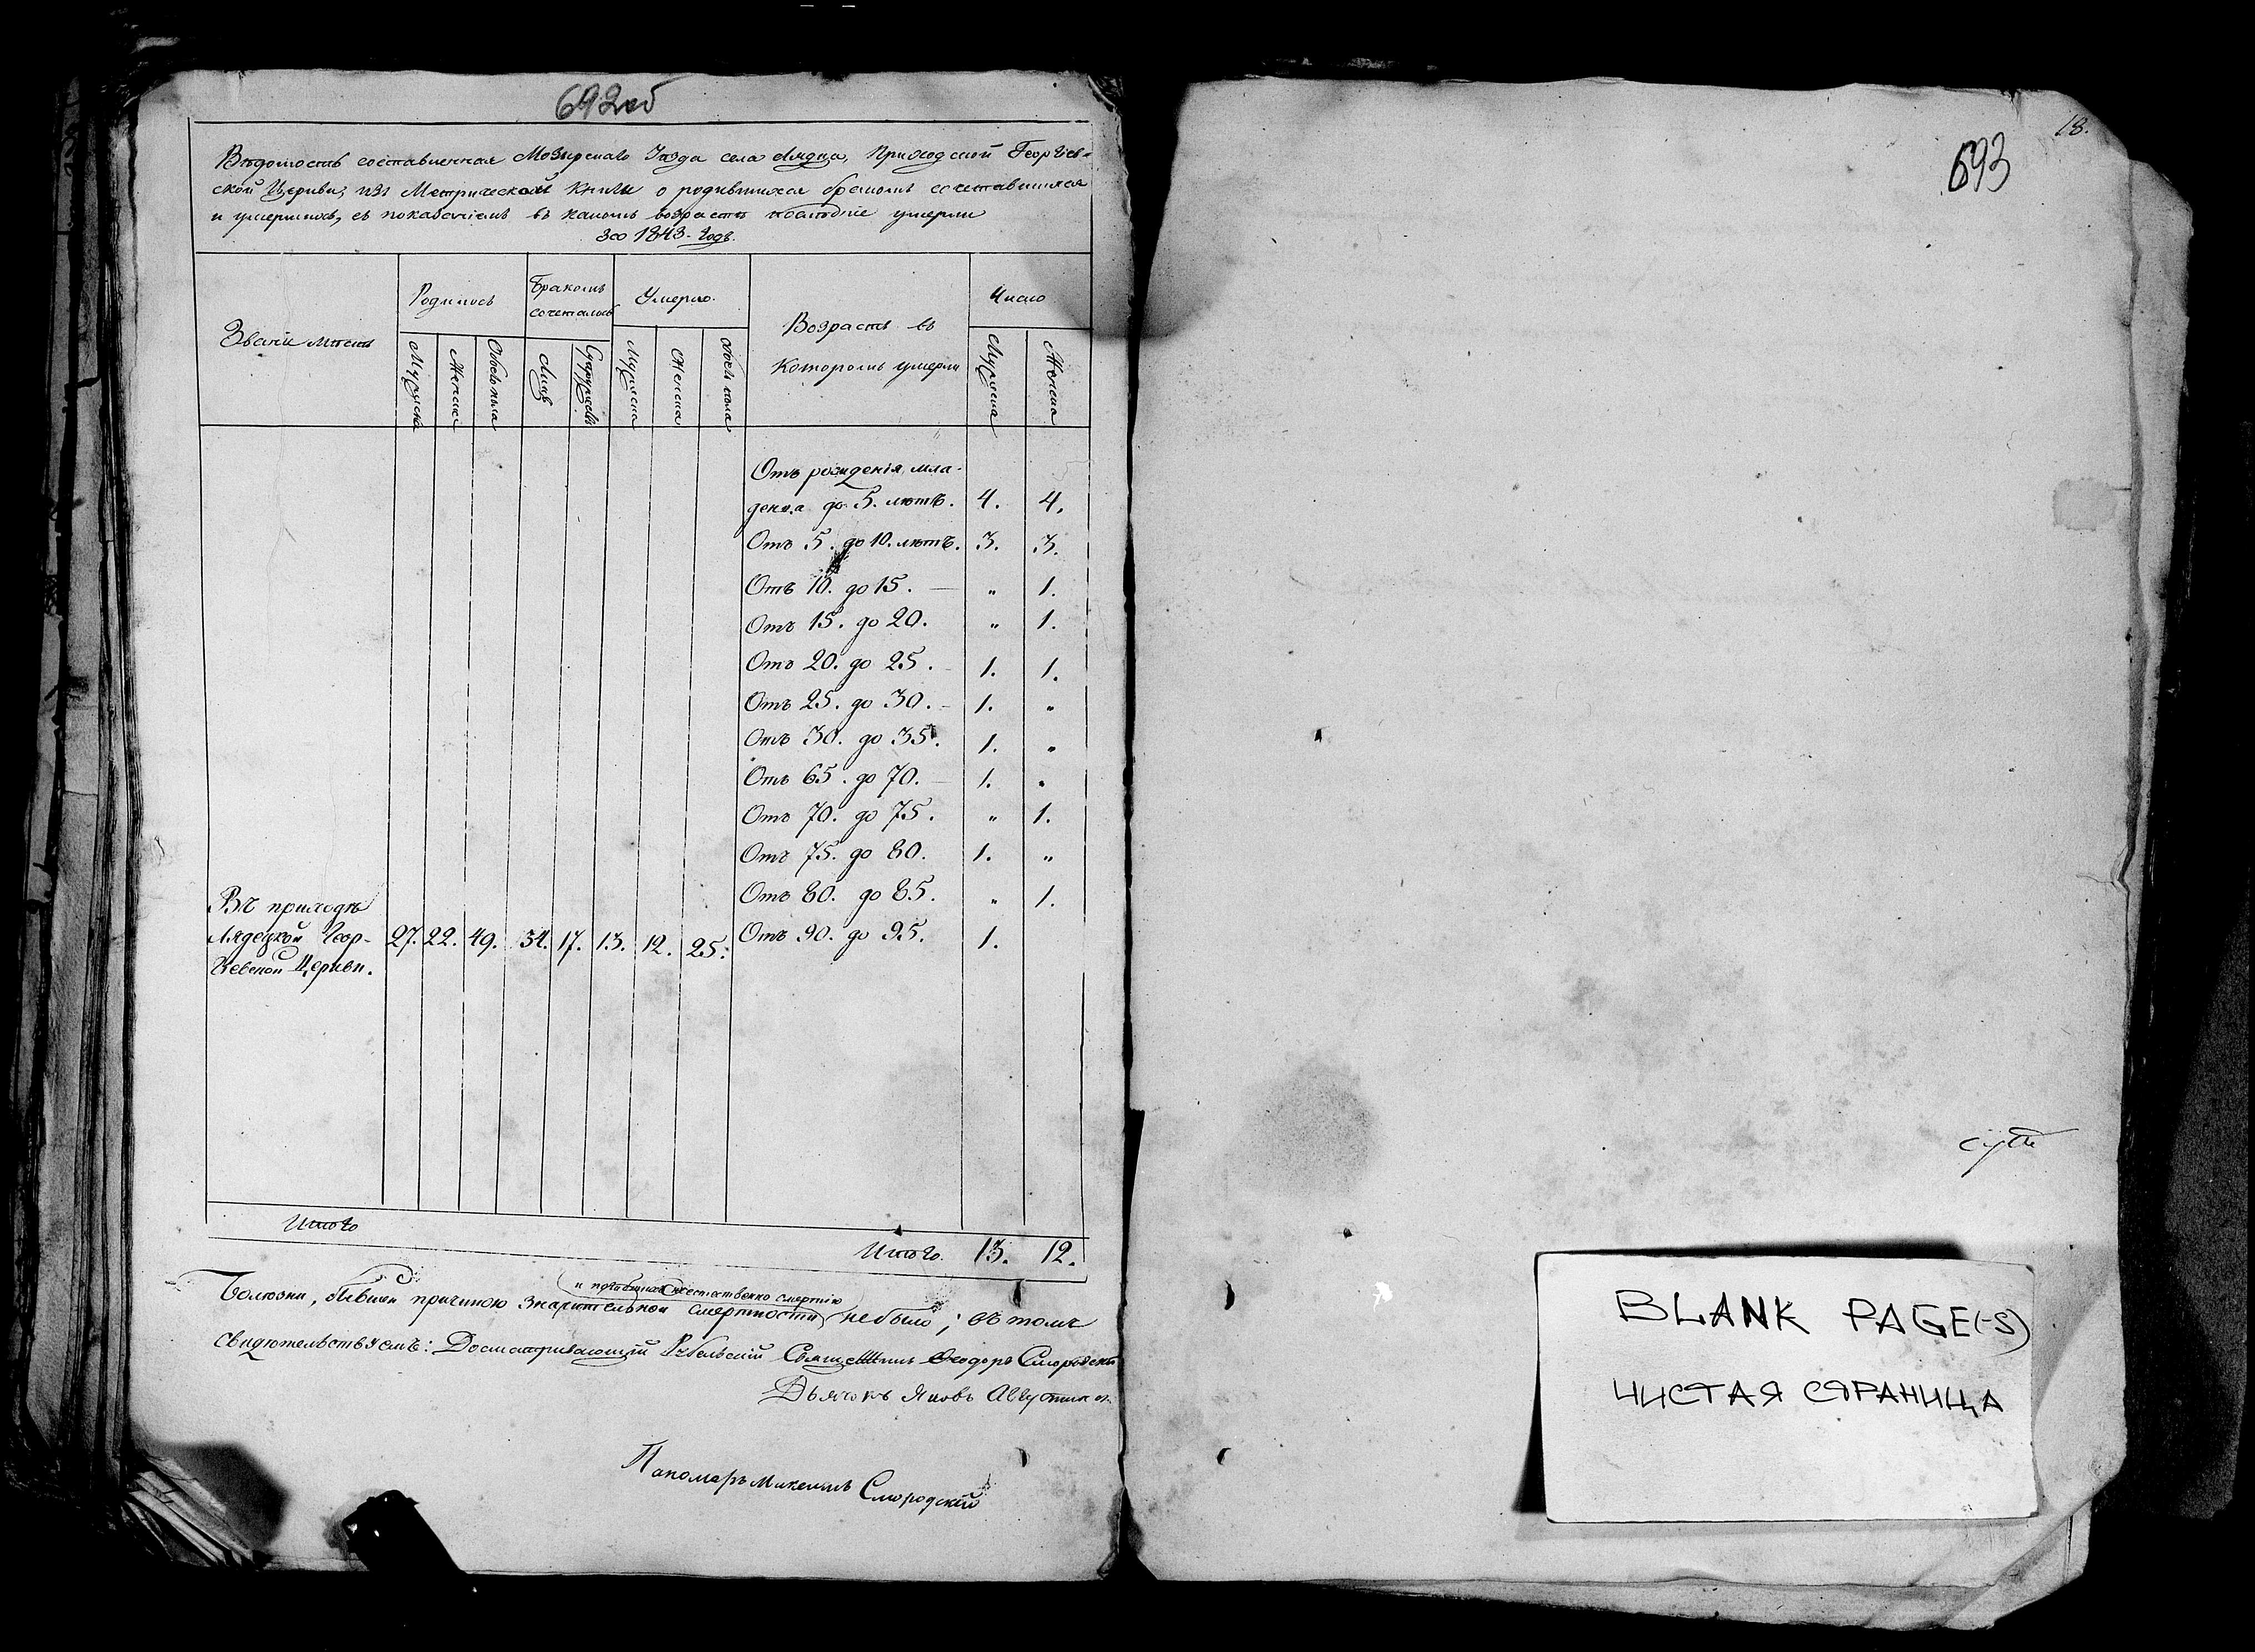 692об
Вѣдомость составленная Мозырскаго Уѣзда села Лядца, Приходской Георгіев-
ской Церкви, изъ Метрической Книги о родившихся бракомъ сочетавшихся
и умершихъ, съ показаніемъ въ какомъ возрастѣ послѣдніе умерли
за 1843. годъ.
Званіе мѣстъ
Родилось
Бракомъ сочеталось
Умерло.
Возрастъ въ которомъ умерли
Число
Мужеска
Женска
Обоего пола
Лицъ
Супружествъ
Мужеска
Женска
Обоего пола
Мужеска
Женска
Отъ рожденія мла-
денца до 5. лѣтъ. 4. 4.
Отъ 5. до 10. лѣтъ. 3. 3.
Отъ 10. до 15. — „ 1.
Отъ 15. до 20. „ 1.
Отъ 20. до 25. – 1. 1.
Отъ 25. до 30. – 1. „
Отъ 30. до 35. 1. „
Отъ 65. до 70. — 1. „
Отъ 70. до 75. „ 1.
Отъ 75. до 80. 1. „
Отъ 80. до 85. „ 1.
Отъ 90. до 95. 1.
Въ приходѣ
Лядецкой Геор-
гіевской Церкви.
27. 22. 49. 34. 17. 13. 12. 25.
Итого
Итого. 13. 12.
и погибшихъ неестественно смертію
Болѣзни, бывшей причиною значительной смертности не было; въ томъ
свидѣтельствуемъ: Досматривающій Священникъ Ѳеодоръ Смородскій
Дьячокъ Яковъ
Пономарь Смородскій
18.
693
BLANK PAGE(-S)
ЧИСТАЯ СТРАНИЦА